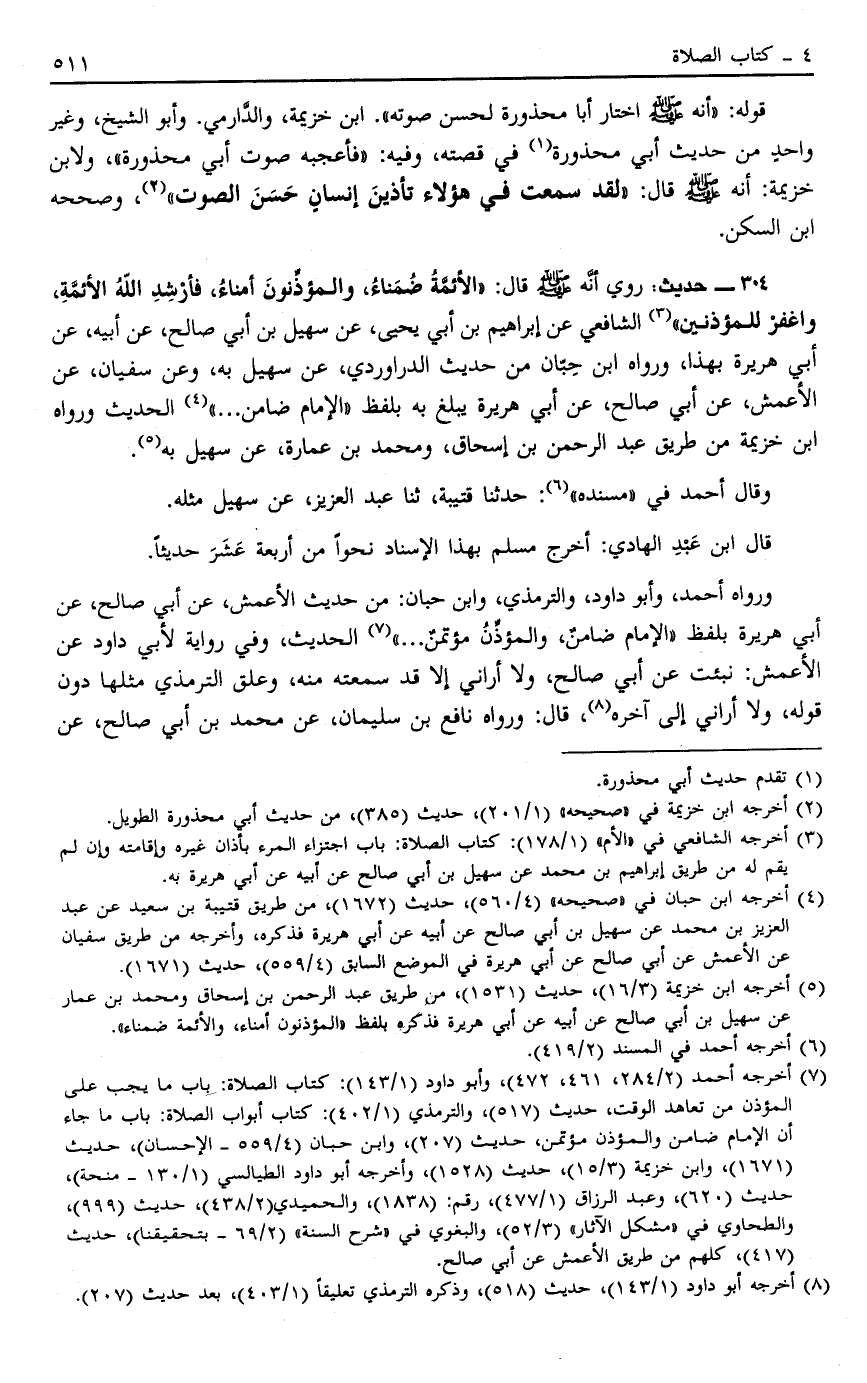 ٤ ـ كتاب الصلاة ٥١١
قوله: «أنه ﷺ اختار أبا محذورة لحسن صوته». ابن خزيمة، والدَّارمي. وأبو الشيخ، وغير
واحدٍ من حديث أبي محذورة(١) في قصته، وفيه: «فأعجبه صوت أبي محذورة»، ولابن
خزيمة: أنه ﷺ قال: «لقد سمعت في هؤلاء تأذينَ إنسانٍ حَسَنَ الصوت»(٢)، وصححه
ابن السكن.
٣٠٤ ـ حديث: روي أنَّه ﷺ قال: «الأئمَّةُ ضُمَناءُ، والمؤذِّنونَ أمناءُ، فأرْشِدِ اللّهُ الأئمَّةِ،
واغفرْ للمؤذنين»(٣) الشافعي عن إبراهيم بن أبي يحيى، عن سهيل بن أبي صالح، عن أبيه، عن
أبي هريرة بهذا، ورواه ابن حِبّان من حديث الدراوردي، عن سهيل به، وعن سفيان، عن
الأعمش، عن أبي صالح، عن أبي هريرة يبلغ به بلفظ «الإمام ضامن...»(٤) الحديث ورواه
ابن خزيمة من طريق عبد الرحمن بن إسحاق، ومحمد بن عمارة، عن سهيل به(٥).
وقال أحمد في «مسنده»(٦): حدثنا قتيبة، ثنا عبد العزيز، عن سهيل مثله.
قال ابن عَبْدِ الهادي: أخرج مسلم بهذا الإسناد نحواً من أربعة عَشَرَ حديثاً.
ورواه أحمد، وأبو داود، والترمذي، وابن حبان: من حديث الأعمش، عن أبي صالح، عن
أبي هريرة بلفظ «الإمام ضامنٌ، والمؤذِّنُ مؤتمنٌ...»(٧) الحديث، وفي رواية لأبي داود عن
الأعمش: نبئت عن أبي صالح، ولا أراني إلا قد سمعته منه، وعلق الترمذي مثلها دون
قوله، ولا أراني إلى آخره(٨)، قال: ورواه نافع بن سليمان، عن محمد بن أبي صالح، عن
(١) تقدم حديث أبي محذورة.
(٢) أخرجه ابن خزيمة في «صحيحه» (٢٠١/١)، حديث (٣٨٥)، من حديث أبي محذورة الطويل.
(٣) أخرجه الشافعي في «الأم» (١٧٨/١): كتاب الصلاة: باب اجتزاء المرء بأذان غيره وإقامته وإن لم
يقم له من طريق إبراهيم بن محمد عن سهيل بن أبي صالح عن أبيه عن أبي هريرة به.
(٤) أخرجه ابن حبان في «صحيحه» (٥٦٠/٤)، حديث (١٦٧٢)، من طريق قتيبة بن سعيد عن عبد
العزيز بن محمد عن سهيل بن أبي صالح عن أبيه عن أبي هريرة فذكره، وأخرجه من طريق سفيان
عن الأعمش عن أبي صالح عن أبي هريرة في الموضع السابق (٥٥٩/٤)، حديث (١٦٧١).
(٥) أخرجه ابن خزيمة (١٦/٣)، حديث (١٥٣١)، من طريق عبد الرحمن بن إسحاق ومحمد بن عمار
عن سهيل بن أبي صالح عن أبيه عن أبي هريرة فذكره بلفظ «المؤذنون أمناء، والأئمة ضمناء».
(٦) أخرجه أحمد في المسند (٤١٩/٢).
(٧) أخرجه أحمد (٢٨٤/٢، ٤٦١، ٤٧٢)، وأبو داود (١٤٣/١): كتاب الصلاة: باب ما يجب على
المؤذن من تعاهد الوقت، حديث (٥١٧)، والترمذي (٤٠٢/١): كتاب أبواب الصلاة: باب ما جاء
أن الإمام ضامن والمؤذن مؤتمن، حديث (٢٠٧)، وابن حبان (٥٥٩/٤ ـ الإحسان)، حديث
(١٦٧١)، وابن خزيمة (١٥/٣)، حديث (١٥٢٨)، وأخرجه أبو داود الطيالسي (١٣٠/١ ـ منحة)،
حديث (٦٢٠)، وعبد الرزاق (٤٧٧/١)، رقم: (١٨٣٨)، والحميدي(٤٣٨/٢)، حديث (٩٩٩)،
والطحاوي في «مشكل الآثار» (٥٢/٣)، والبغوي في «شرح السنة» (٦٩/٢ ـ بتحقيقنا)، حديث
(٤١٧)، كلهم من طريق الأعمش عن أبي صالح.
(٨) أخرجه أبو داود (١٤٣/١)، حديث (٥١٨)، وذكره الترمذي تعليقاً (٤٠٣/١)، بعد حديث (٢٠٧).